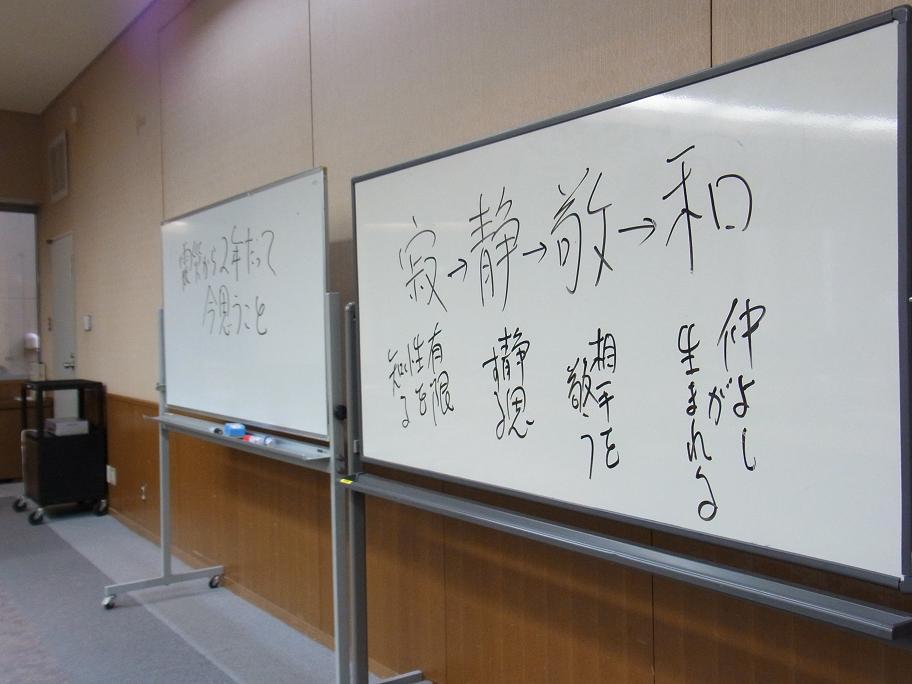 震災から2年たって
今思うこと
寂→静→敬→和
有限
性を
知る
静思
する
相手を
敬う
仲よし
が
生まれる